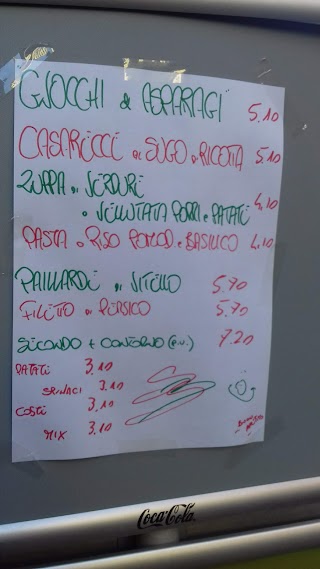 GNOCCHI di ASPARAGI 5.10
CASARECCE di SUGO e RICOTTA 5.10
ZUPPA di VERDURE
o VELLUTATA PORRI e PATATE 4.10
PASTA o RISO POMOD. e BASILICO 4.10
PAILLARDE di VITELLO 5.70
FILETTO di PERSICO 5.70
SECONDO + CONTORNO (P.U.) 7.20
PATATE 3.10
SPINACI 3.10
COSTE 3.10
MIX 3.10
Coca-Cola